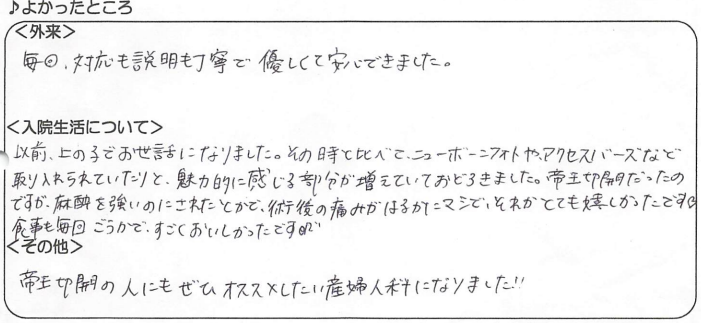 ♪よかったところ
＜外来＞
毎回、対応も説明も丁寧で優しくて安心できました。
＜入院生活について＞
以前、上の子でお世話になりました。その時と比べて、ニューボーンフォトや、アクセスバーズなど
取り入れられていたりと、魅力的に感じる部分が増えていておどろきました。帝王切開だったの
ですが、麻酔を強いのにされたとかで、術後の痛みがはるかにマシで、それがとても嬉しかったです
食事も毎回ごうかで、すごくおいしかったです
＜その他＞
帝王切開の人にもぜひオススメしたい産婦人科になりました!!